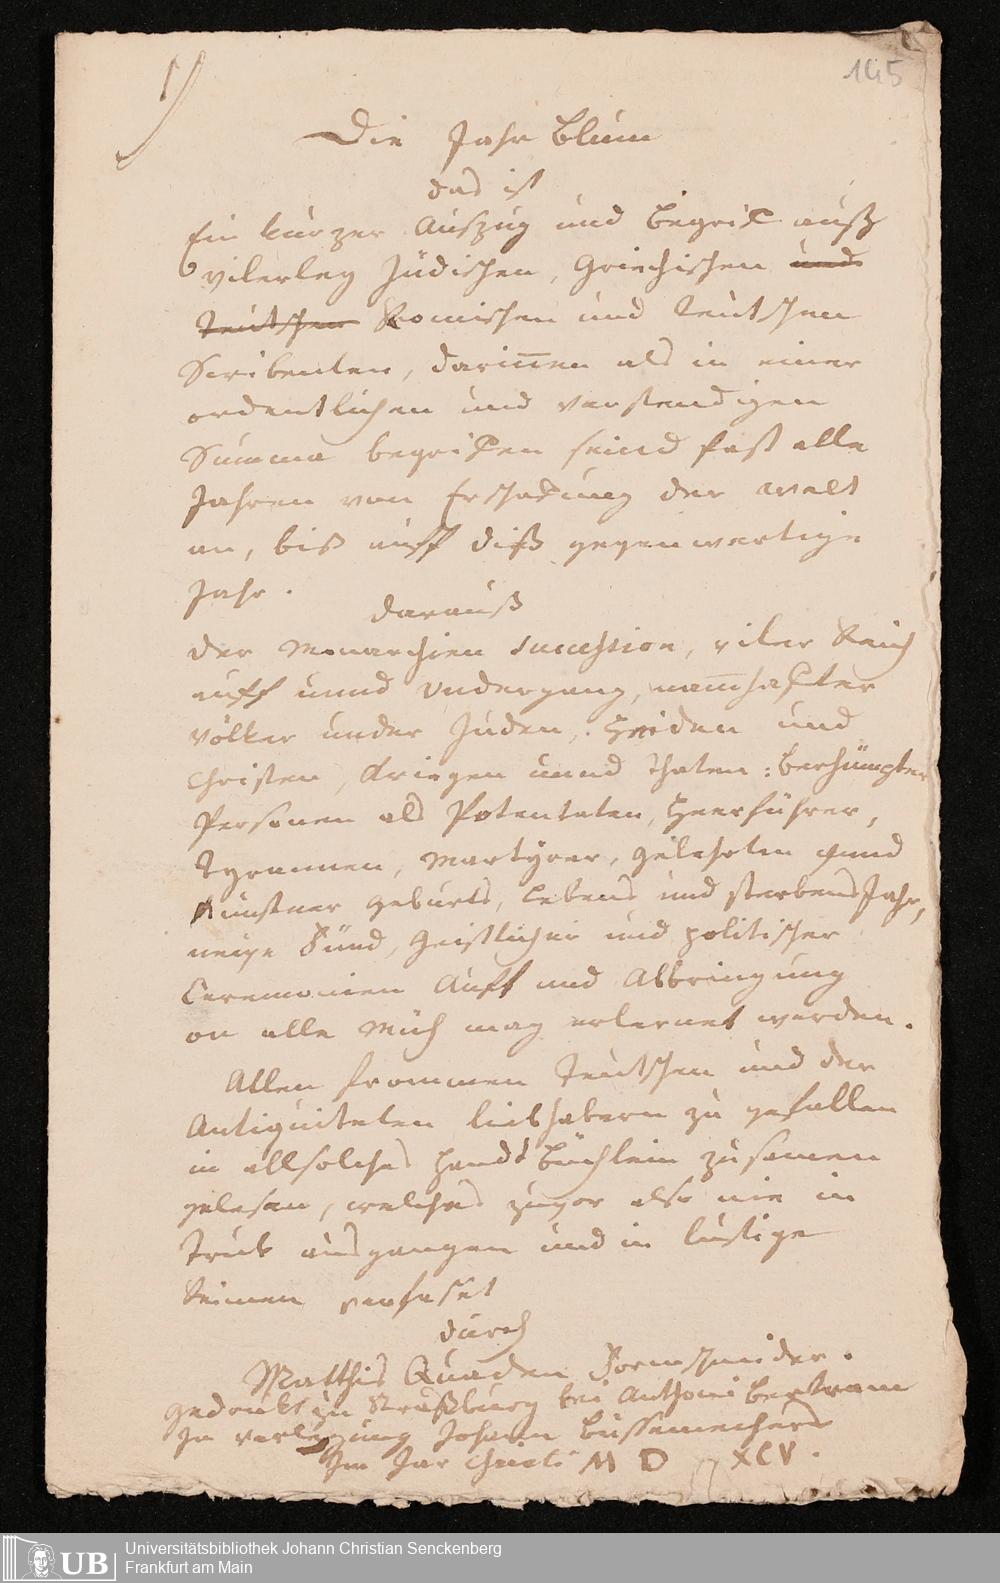 1)
145
Die Jahr Blum
das ist
Ein kurzer Auszug und Begriff auß
vilerley Jüdischen, Griechischen und
Teutschen Romischen und Teutschen
Scribenten, darinnen als in einer
ordentlichen und verstendigen
Summa begriffen seind fast alle
Jahren von Erschaffung der welt
an, biß auff diß gegenwertige
Jahr.
darauß
der Monarchien Succession, viler Reich
auff unnd Undergang, namhaffter
Völker under Juden, Heiden und
Christen, Kriegen unnd thaten: Berhümpter
Personen als Potentaten, Heerführer,
Tyrannen, Martyrer, Gelehrten unnd
Künstner Geburts, Lebens und sterbens Jahr,
Fünd, Geistlicher und politischer
Ceremonien Auff und Abbringung
on alle Müh mag erlernet werden.
Allen frommen Teutschen und der
Antiquiteten liebhabern zu gefallen
in allsolches Handt Büchlein zusamen
gelesen, welches zuvor also nie in
Truck ausgangen und in lustige
Reimen verfasset
durch
Matthis Quaden Formschneider.
Gedruckt zu Straßburg bei Anthoni Bertram
In verlegung Johann Bussemechers
Im Jar Christi M D XCV.
UB Universitätsbibliothek Johann Christian Senckenberg
Frankfurt am Main